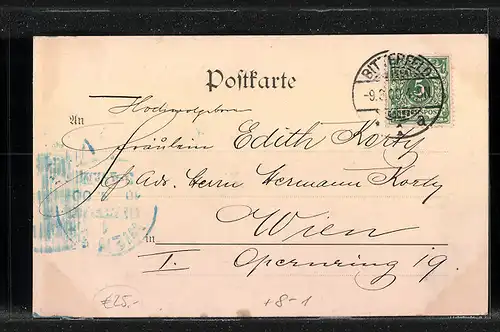 Postkarte
BITTERFELD
5
a
Hochwohlgeboren
An
Fräulein Edith Korty
p. Adr. Herrn Hermann Korty
Wien
in
I. Opernring 19.
€25.-
+8-1